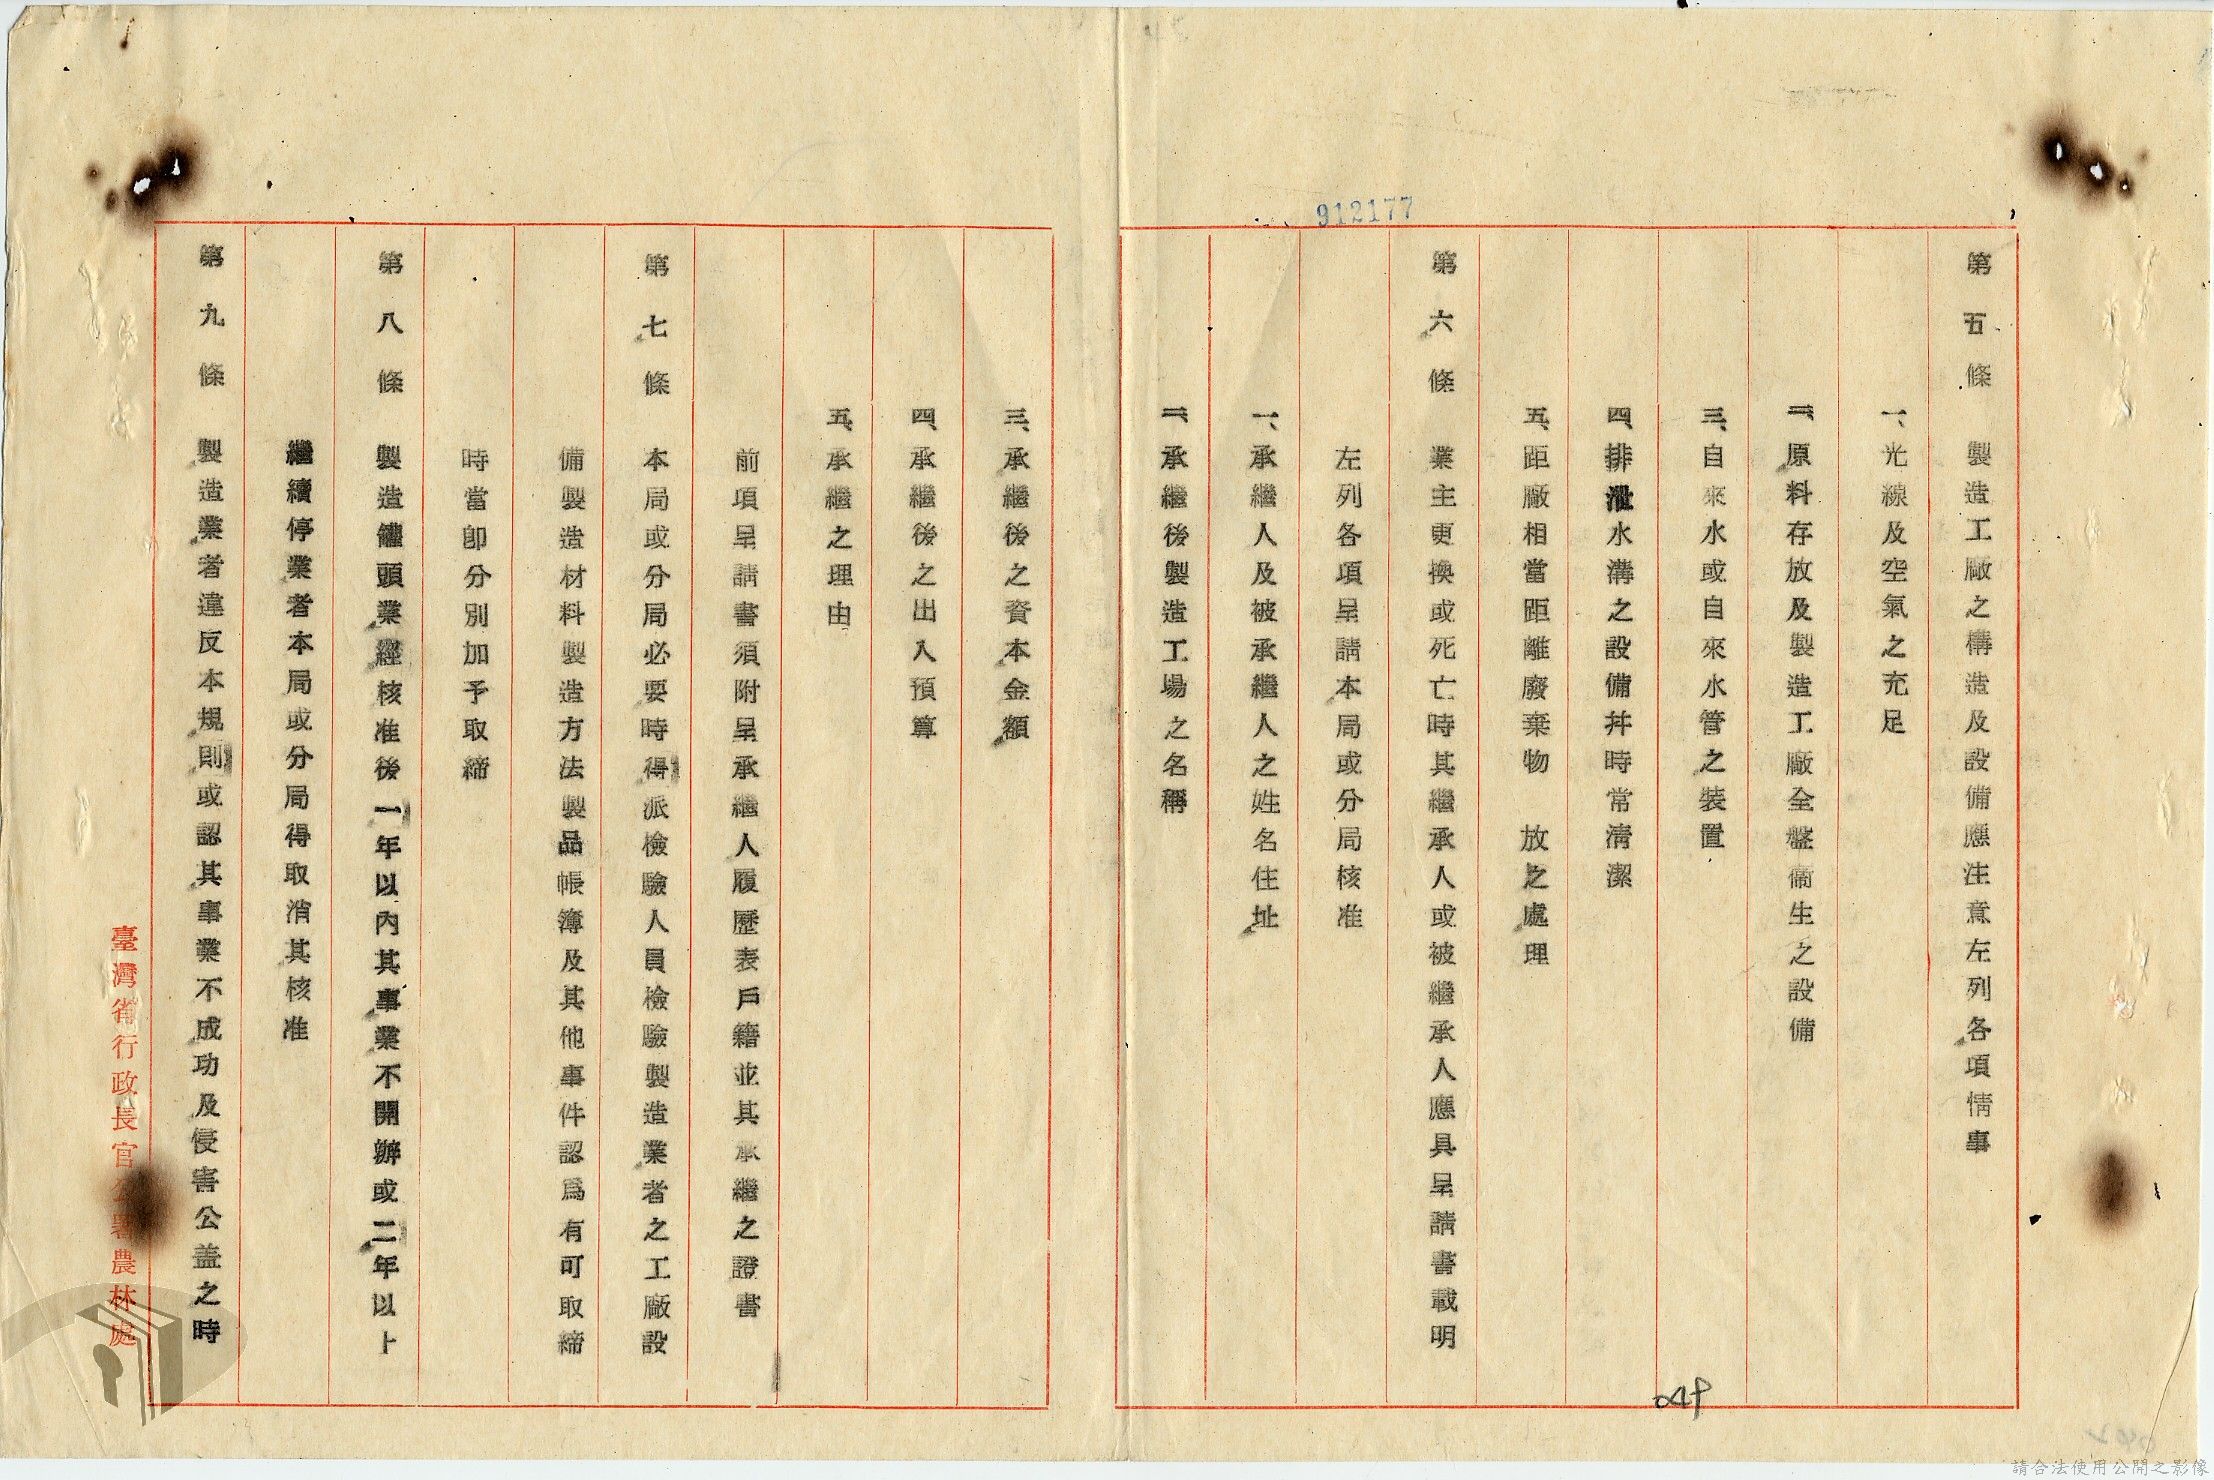 912177
第五條　製造工廠之構造及設備應注意左列各項情事
一、光線及空氣之充足
二、原料存放及製造工廠全盤衛生之設備
三、自來水或自來水管之裝置
四、排泄水溝之設備幷時常清潔
五、距廠相當距離廢棄物　放之處理
第六條　業主更換或死亡時其繼承人或被繼承人應具呈請書載明
左列各項呈請本局或分局核准
一、承繼人及被承繼人之姓名住址
二、承繼後製造工場之名稱
三、承繼後之資本金額
四、承繼後之出入預算
五、承繼之理由
前項呈請書須附呈承繼人履歷表戶籍並其承繼之證書
第七條　本局或分局必要時得派檢驗人員檢驗製造業者之工廠設
備製造材料製造方法製品帳簿及其他事件認爲有可取締
時當卽分別加予取締
第八條　製造罐頭業經核准後一年以內其事業不開辦或二年以上
繼續停業者本局或分局得取消其核准
第九條　製造業者違反本規則或認其事業不成功及侵害公益之時
臺灣省行政長官公署農林處
049
請合法使用公開之影像